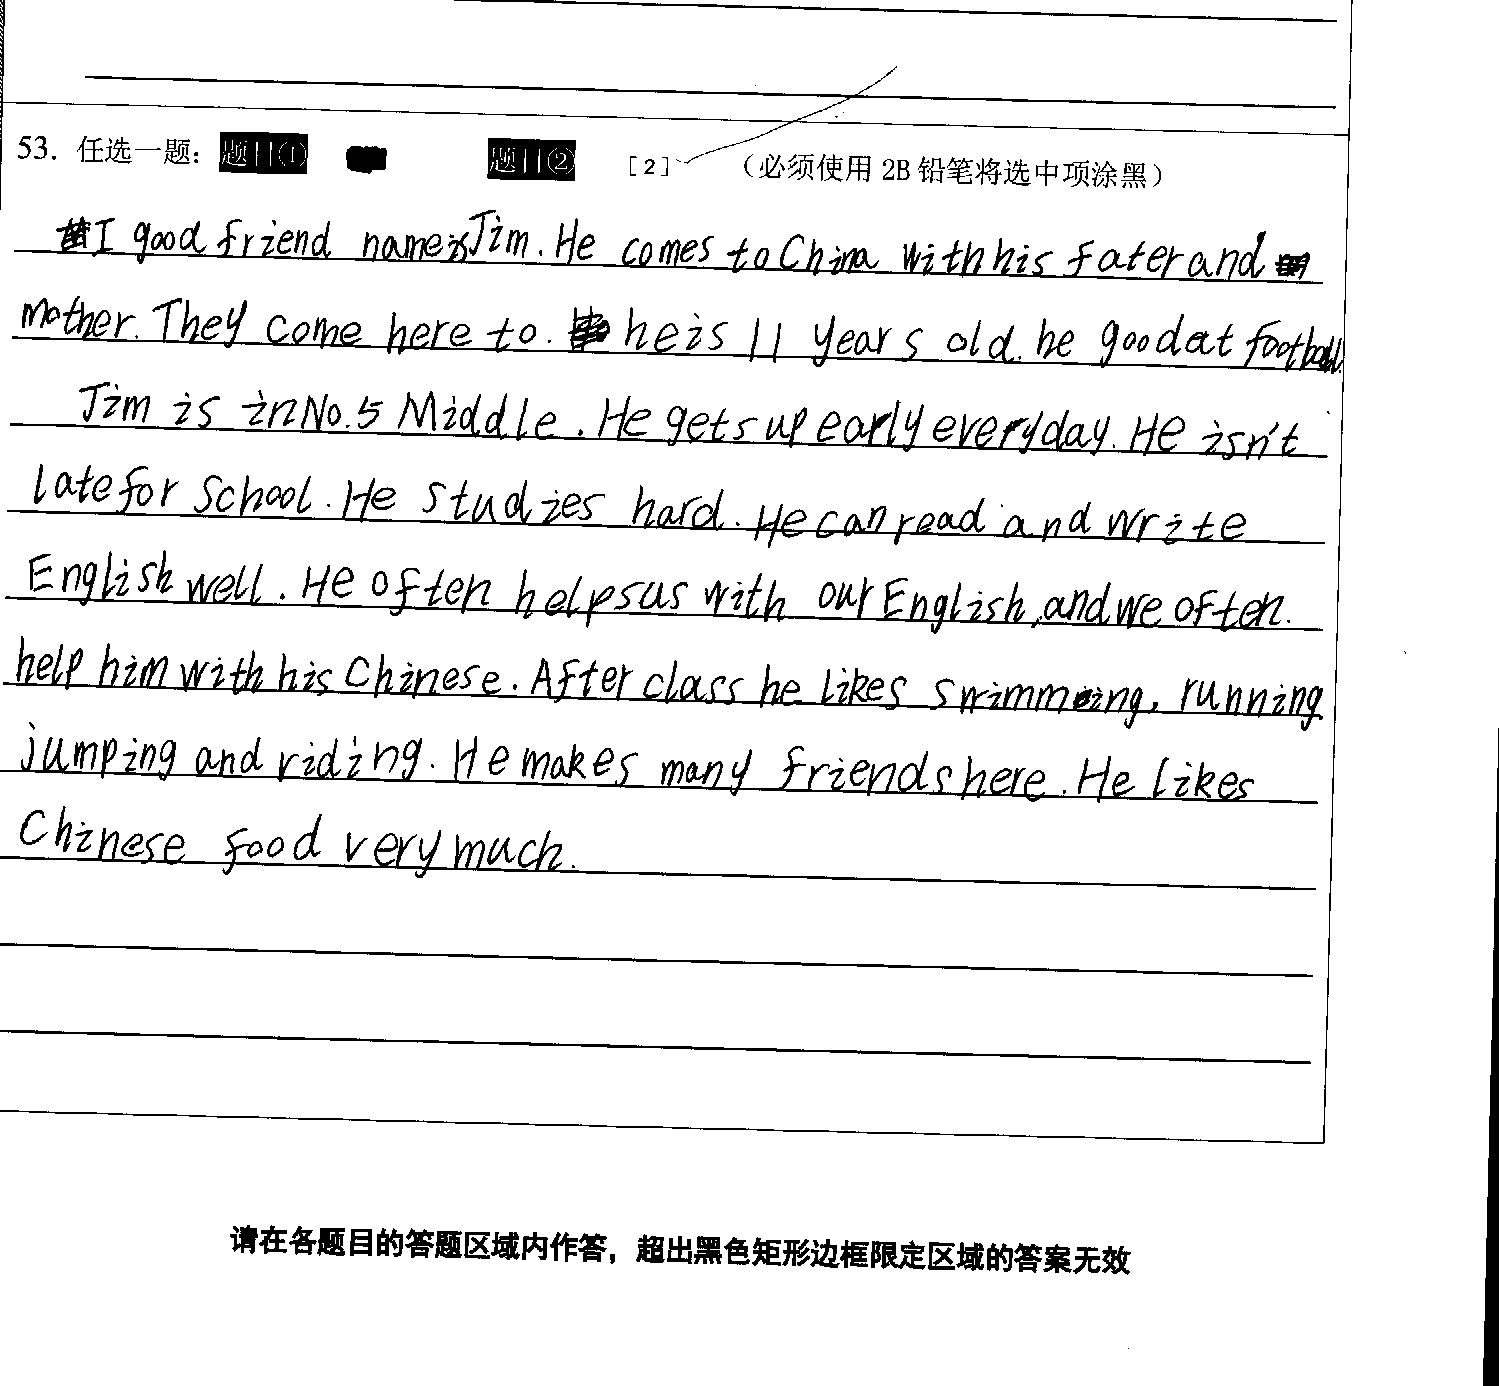 53. 任选一题： 题目① 题目② [2] （必须使用 2B 铅笔将选中项涂黑）
I good friend name is Jim. He comes to China with his fater and
mother. They come here to. he is 11 years old. he good at football.
Jim is in No.5 Middle. He gets up early everyday. He isn't
late for school. He studies hard. He can read and write
English well. He often helps us with our English, and we often
help him with his Chinese. After class he likes swimming, running
jumping and riding. He makes many friends here. He likes
Chinese food very much.
请在各题目的答题区域内作答，超出黑色矩形边框限定区域的答案无效